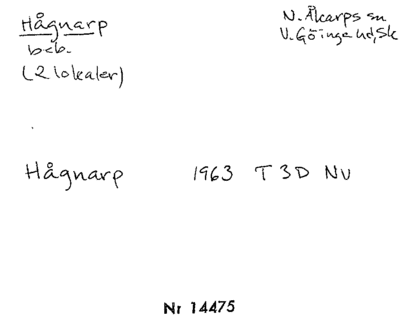 Hågnarp
N. Åkarps sn
beb.
V. Göinge hd, Sk
(2 lokaler)
Hågnarp 1963 T 3D NV
Nr 14475